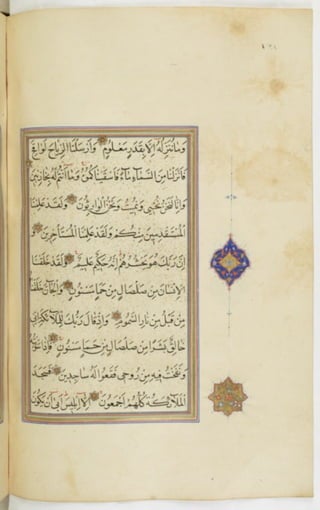 وَمَا نُنَزِّلُهُ اِلَّا بِقَدَرٍ مَعْلُومٍ وَاَرْسَلْنَا الرِّيَاحَ لَوَاقِحَ
فَاَنْزَلْنَا مِنَ السَّمَاءِ مَاءً فَاَسْقَيْنَاكُمُوهُ وَمَا اَنْتُمْ لَهُ بِخَازِنِينَ
وَاِنَّا لَنَحْنُ نُحْيِي وَنُمِيتُ وَنَحْنُ الْوَارِثُونَ وَلَقَدْ عَلِمْنَا
الْمُسْتَقْدِمِينَ مِنْكُمْ وَلَقَدْ عَلِمْنَا الْمُسْتَأْخِرِينَ وَ
اِنَّ رَبَّكَ هُوَ يَحْشُرُهُمْ اِنَّهُ حَكِيمٌ عَلِيمٌ وَلَقَدْ خَلَقْنَا
الْاِنْسَانَ مِنْ صَلْصَالٍ مِنْ حَمَاٍ مَسْنُونٍ وَالْجَانَّ خَلَقْنَاهُ
مِنْ قَبْلُ مِنْ نَارِ السَّمُومِ وَاِذْ قَالَ رَبُّكَ لِلْمَلَائِكَةِ اِنِّي
خَالِقٌ بَشَرًا مِنْ صَلْصَالٍ مِنْ حَمَاٍ مَسْنُونٍ فَاِذَا سَوَّيْتُهُ
وَنَفَخْتُ فِيهِ مِنْ رُوحِي فَقَعُوا لَهُ سَاجِدِينَ فَسَجَدَ
الْمَلَائِكَةُ كُلُّهُمْ اَجْمَعُونَ اِلَّا اِبْلِيسَ اَبَى اَنْ يَكُونَ